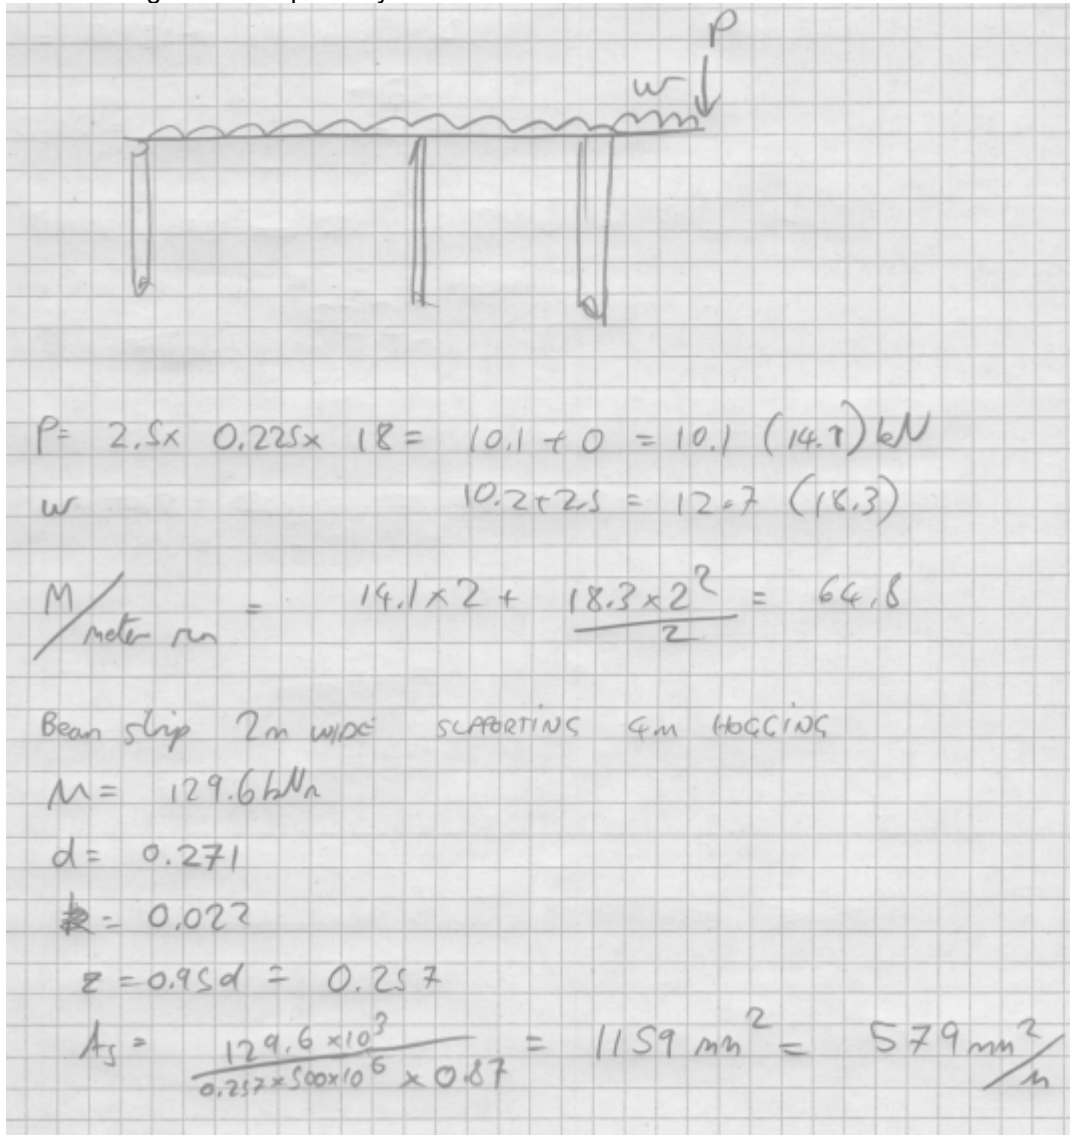 P
w
P= 2.5x 0.225x 18 = 10.1 + 0 = 10.1 (14.1) kN
w 10.2+2.5 = 12.7 (18.3)
M/meter run = 14.1x2 + 18.3x2²/2 = 64.8
Beam strip 2m WIDE SUPPORTING 4m HOGGING
M= 129.6kNm
d= 0.271
k= 0.022
z=0.95d = 0.257
As = 129.6x10³/0.257x500x10⁶ x 0.87 = 1159 mm² = 579 mm²/m